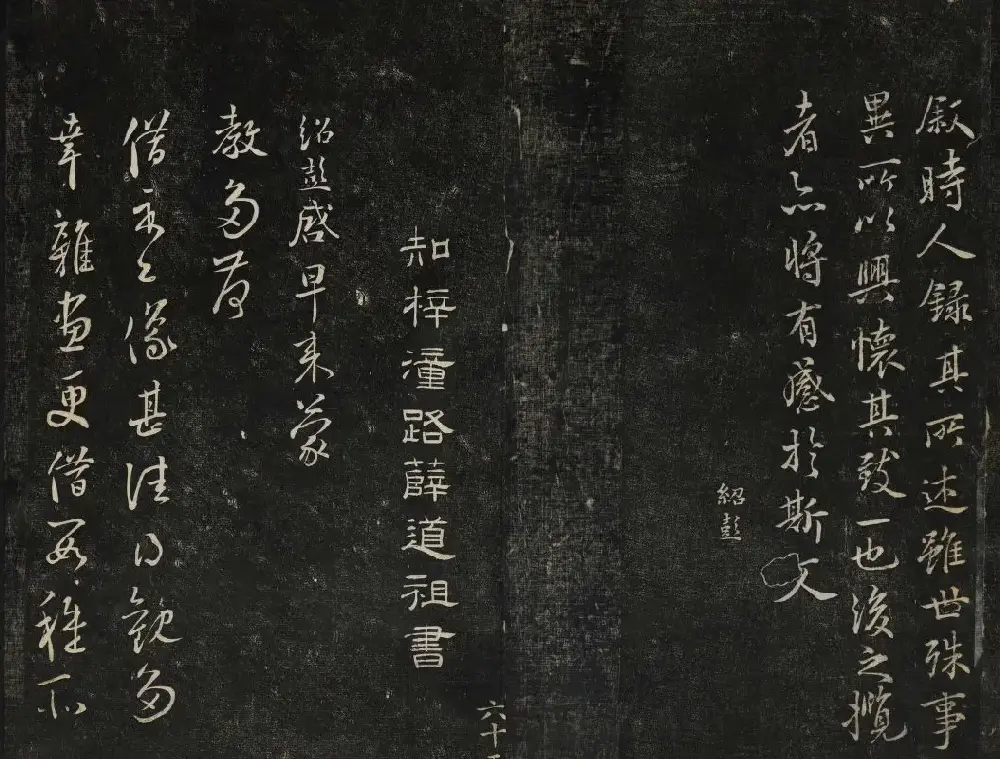 敘時人錄其所述雖世殊事
異所以興懷其致一也後之攬
者亦將有感於斯文
紹彭
六十
知梓潼路薛道祖書
紹彭啓早來蒙
教多荷
借示之像甚佳得觀多
幸雜畫更借數種不